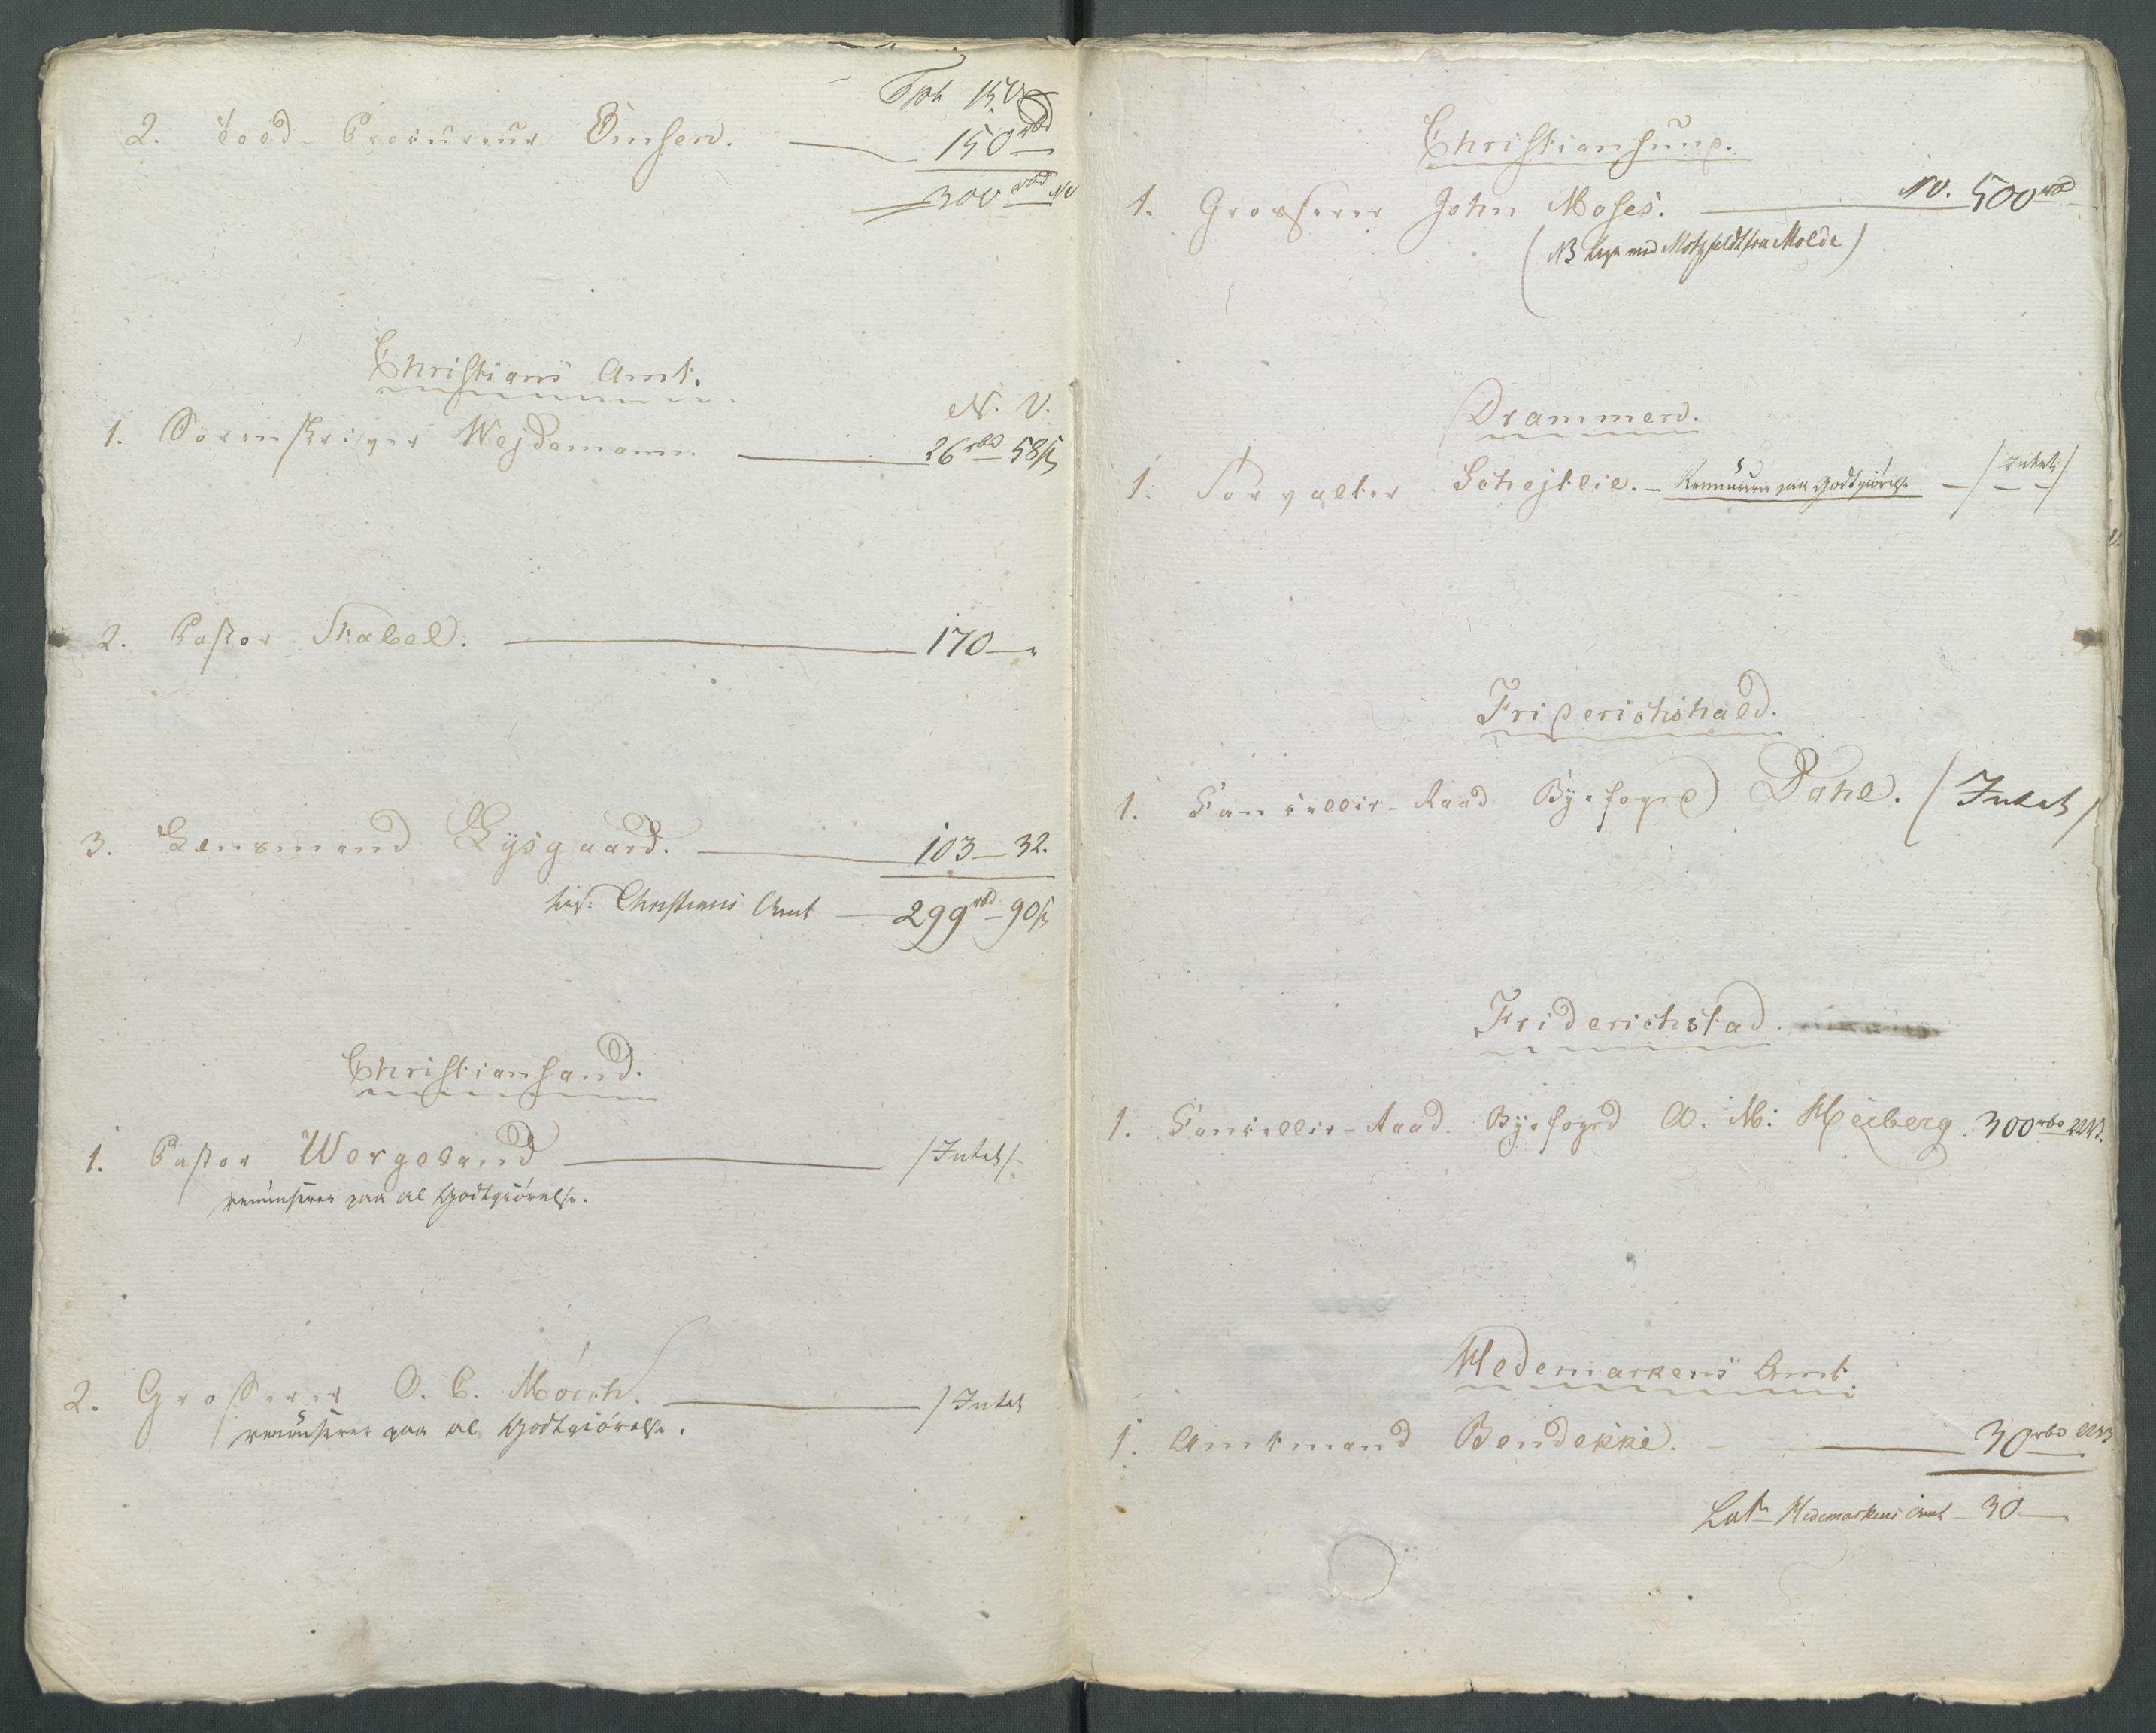 Tpt 150
2. Procureur Omsen. 150 rbd
300 rbd NV
Christians Amt.
N. V.
1. Sorenskriver Wejdemann. 26 rbd 58 ß
2. Pastor Stabel. 170
3. Lensmand Lysgaard. 103 32.
Christians Amt 299 rbd 90 ß
Christiansand.
1. Pastor Wergeland /Intet/
renunserer paa al Godtgiörelse.
2. Grosserer O. C. Mörch. /Intet
renunserer paa al Godtgiörelse.
Christiansund.
1. Grosserer John Moses. NV. 500 rbd
(NB Rejse med Motzfeldt fra Molde)
Drammen.
1. Forvalter Schejtlie. Renunserer paa Godtgiörelse /Intet/
Friderichshald.
1. Cancellie-Raad Byefoged Dahl. (Intet)
Friderichstad.
1. Cancellie-Raad Byefoged A. M. Heiberg. 300 rbd
Hedemarkens Amt.
1. Amtmand Bendekke. 30 rbd
Lat Hedemarkens Amt 30